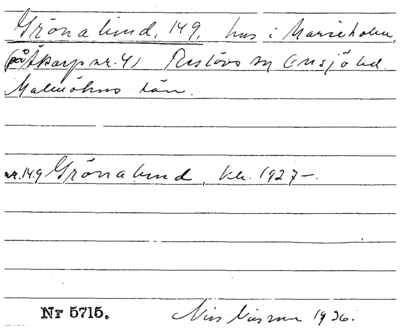 Gröna lund, 149, hus i Marieholm,
(på Åkarp nr. 41 Reslövs sn Onsjö hd.
Malmöhus län.
nr.149 Gröna lund, kb. 1927–.
Nr 5715. Nils Nilsson 1936.